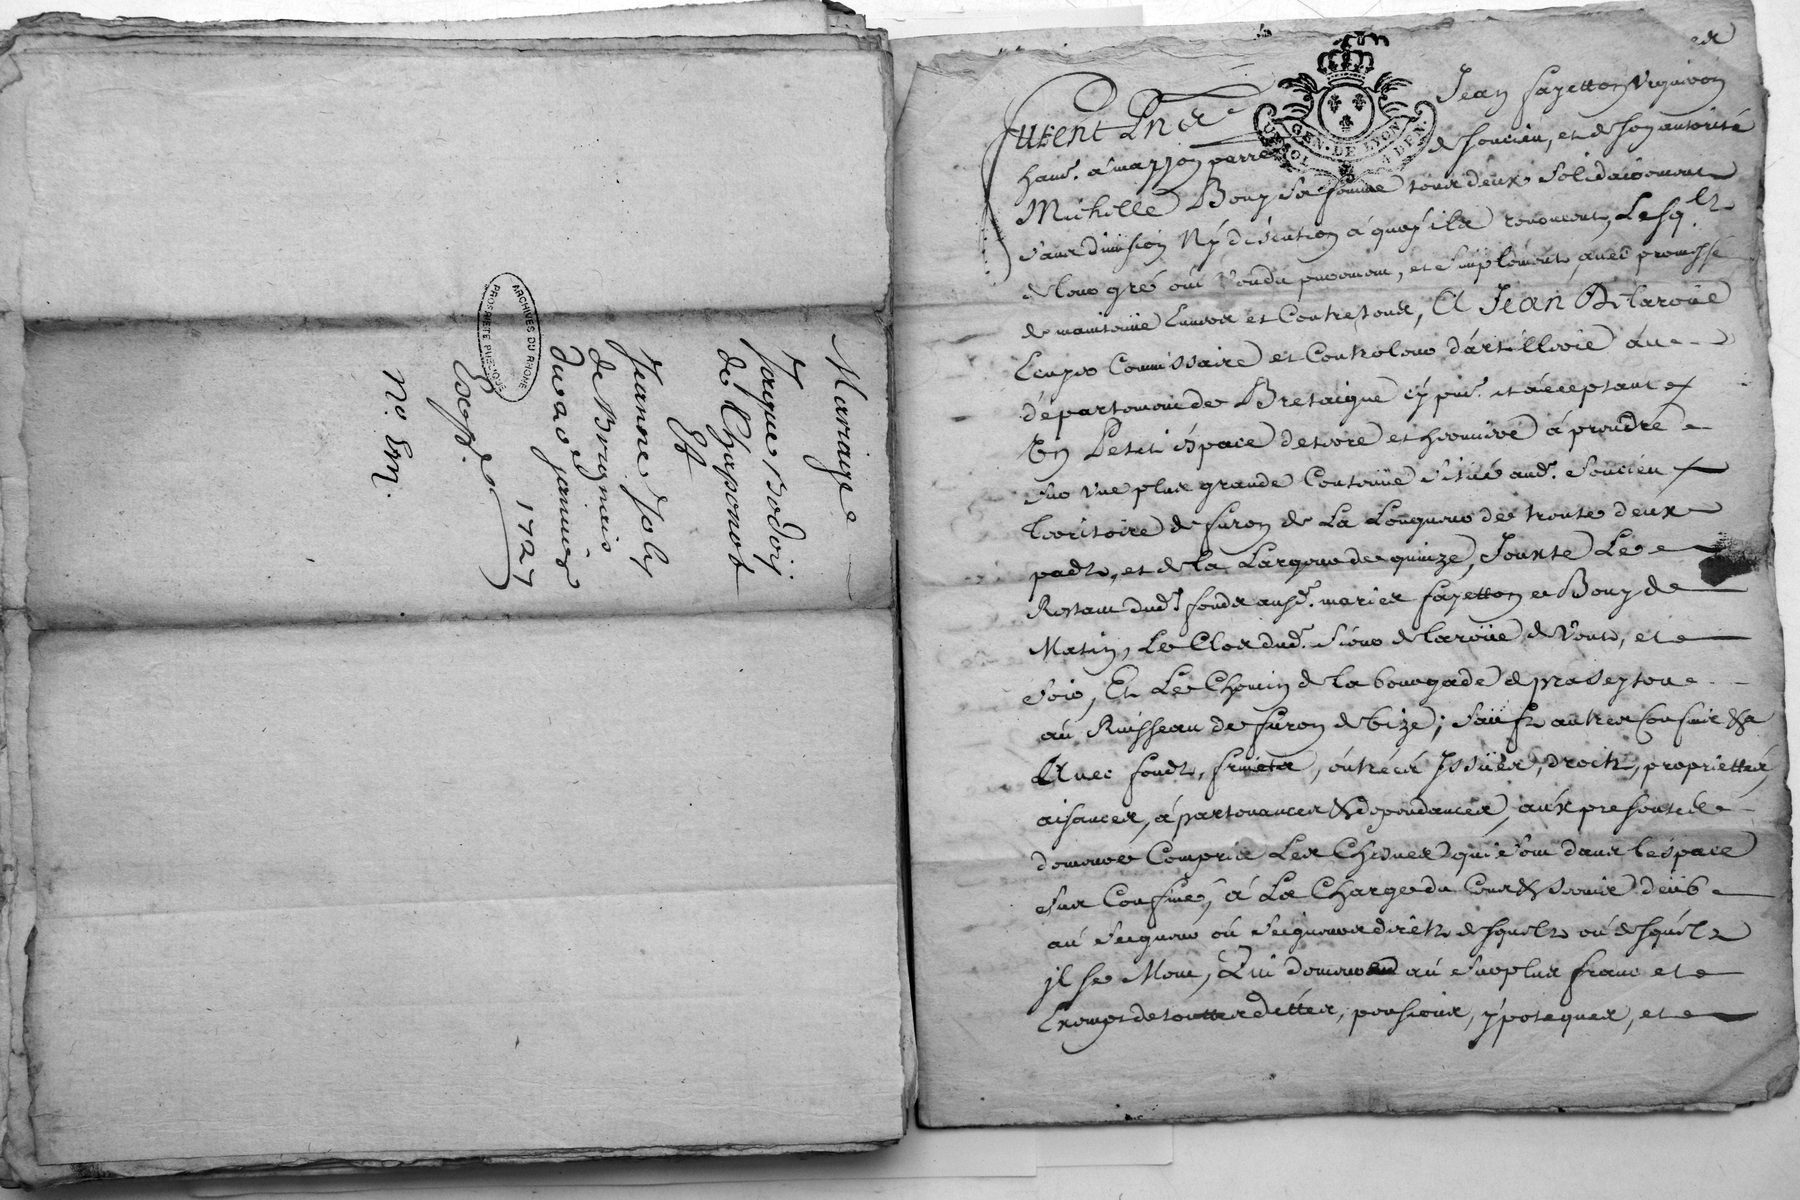 Mariage
Jaque Bodoy
de Chaponost
Et
Jeanne Joly
de Brignais
du 20 janvier
1727
Expé.
No. Em.
ARCHIVES DU RHONE
PROPRIETE PUBLIQUE
GEN. DE LYON
furent Jean fayetton vigneron
hant. a mazzon de soucieu, et de son autorité
Michelle Bouy sa femme tous deux solidairement
sans division Ny discution a quoy ils renoncent, Lesqls
de leur gré ont vendu purement, et simplement avec promesse
de maintenüe Envers et Contre tous, A Jean Delaroüe
Commissaire et Controleur d'artillerie au
departement de Bretaigne cy pnt. et acceptant
Un Petit espace de terre et hermivre a prendre
sur une plus grande Contenüe situé aud. Soucieu
territoire de furon de La Longueur de trente deux
pads, et de la Largeur de quinze, Jouxte Le
Restant dud. fonds ausd. mariés fayetton et Bouy de
Matin, Le Clos dud. sieur de laroüe de Vent, et
soir, Et Le Chemin de la bourgade de
au Ruisseau de furon de bize; sauf autres confins &a
Avec fonds, fruicts, entrées Issües, droits, proprietter,
aisances, apartenances & dependances, aux presentes
demeure Compris Les Chesnes qui sont dans lespace
sus Confiné, a La Charge du Cens & servis deub
au seigneur ou seigneurs directs desquels ou desquels
il se Meut, Qui demeurend au surplus franc et
Exempt de touttes dettes, pensions, ypoteques, et